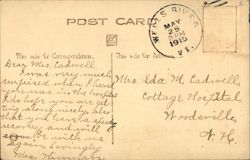 POST CARD
WELLS RIVER
MAY
25
1915
VT.
This side for Correspondence.
This side for Address.
Dear Mrs. Cadwell
I was very much
surprised when I heard
you was in the hospital
I do hope you are get
ting along nicely also
that you have a speedy
recovery and will
soon be with us
again. Lovingly
Mrs.
Mrs. Ida M. Cadwell
Cottage Hospital
Woodsville
N. H.